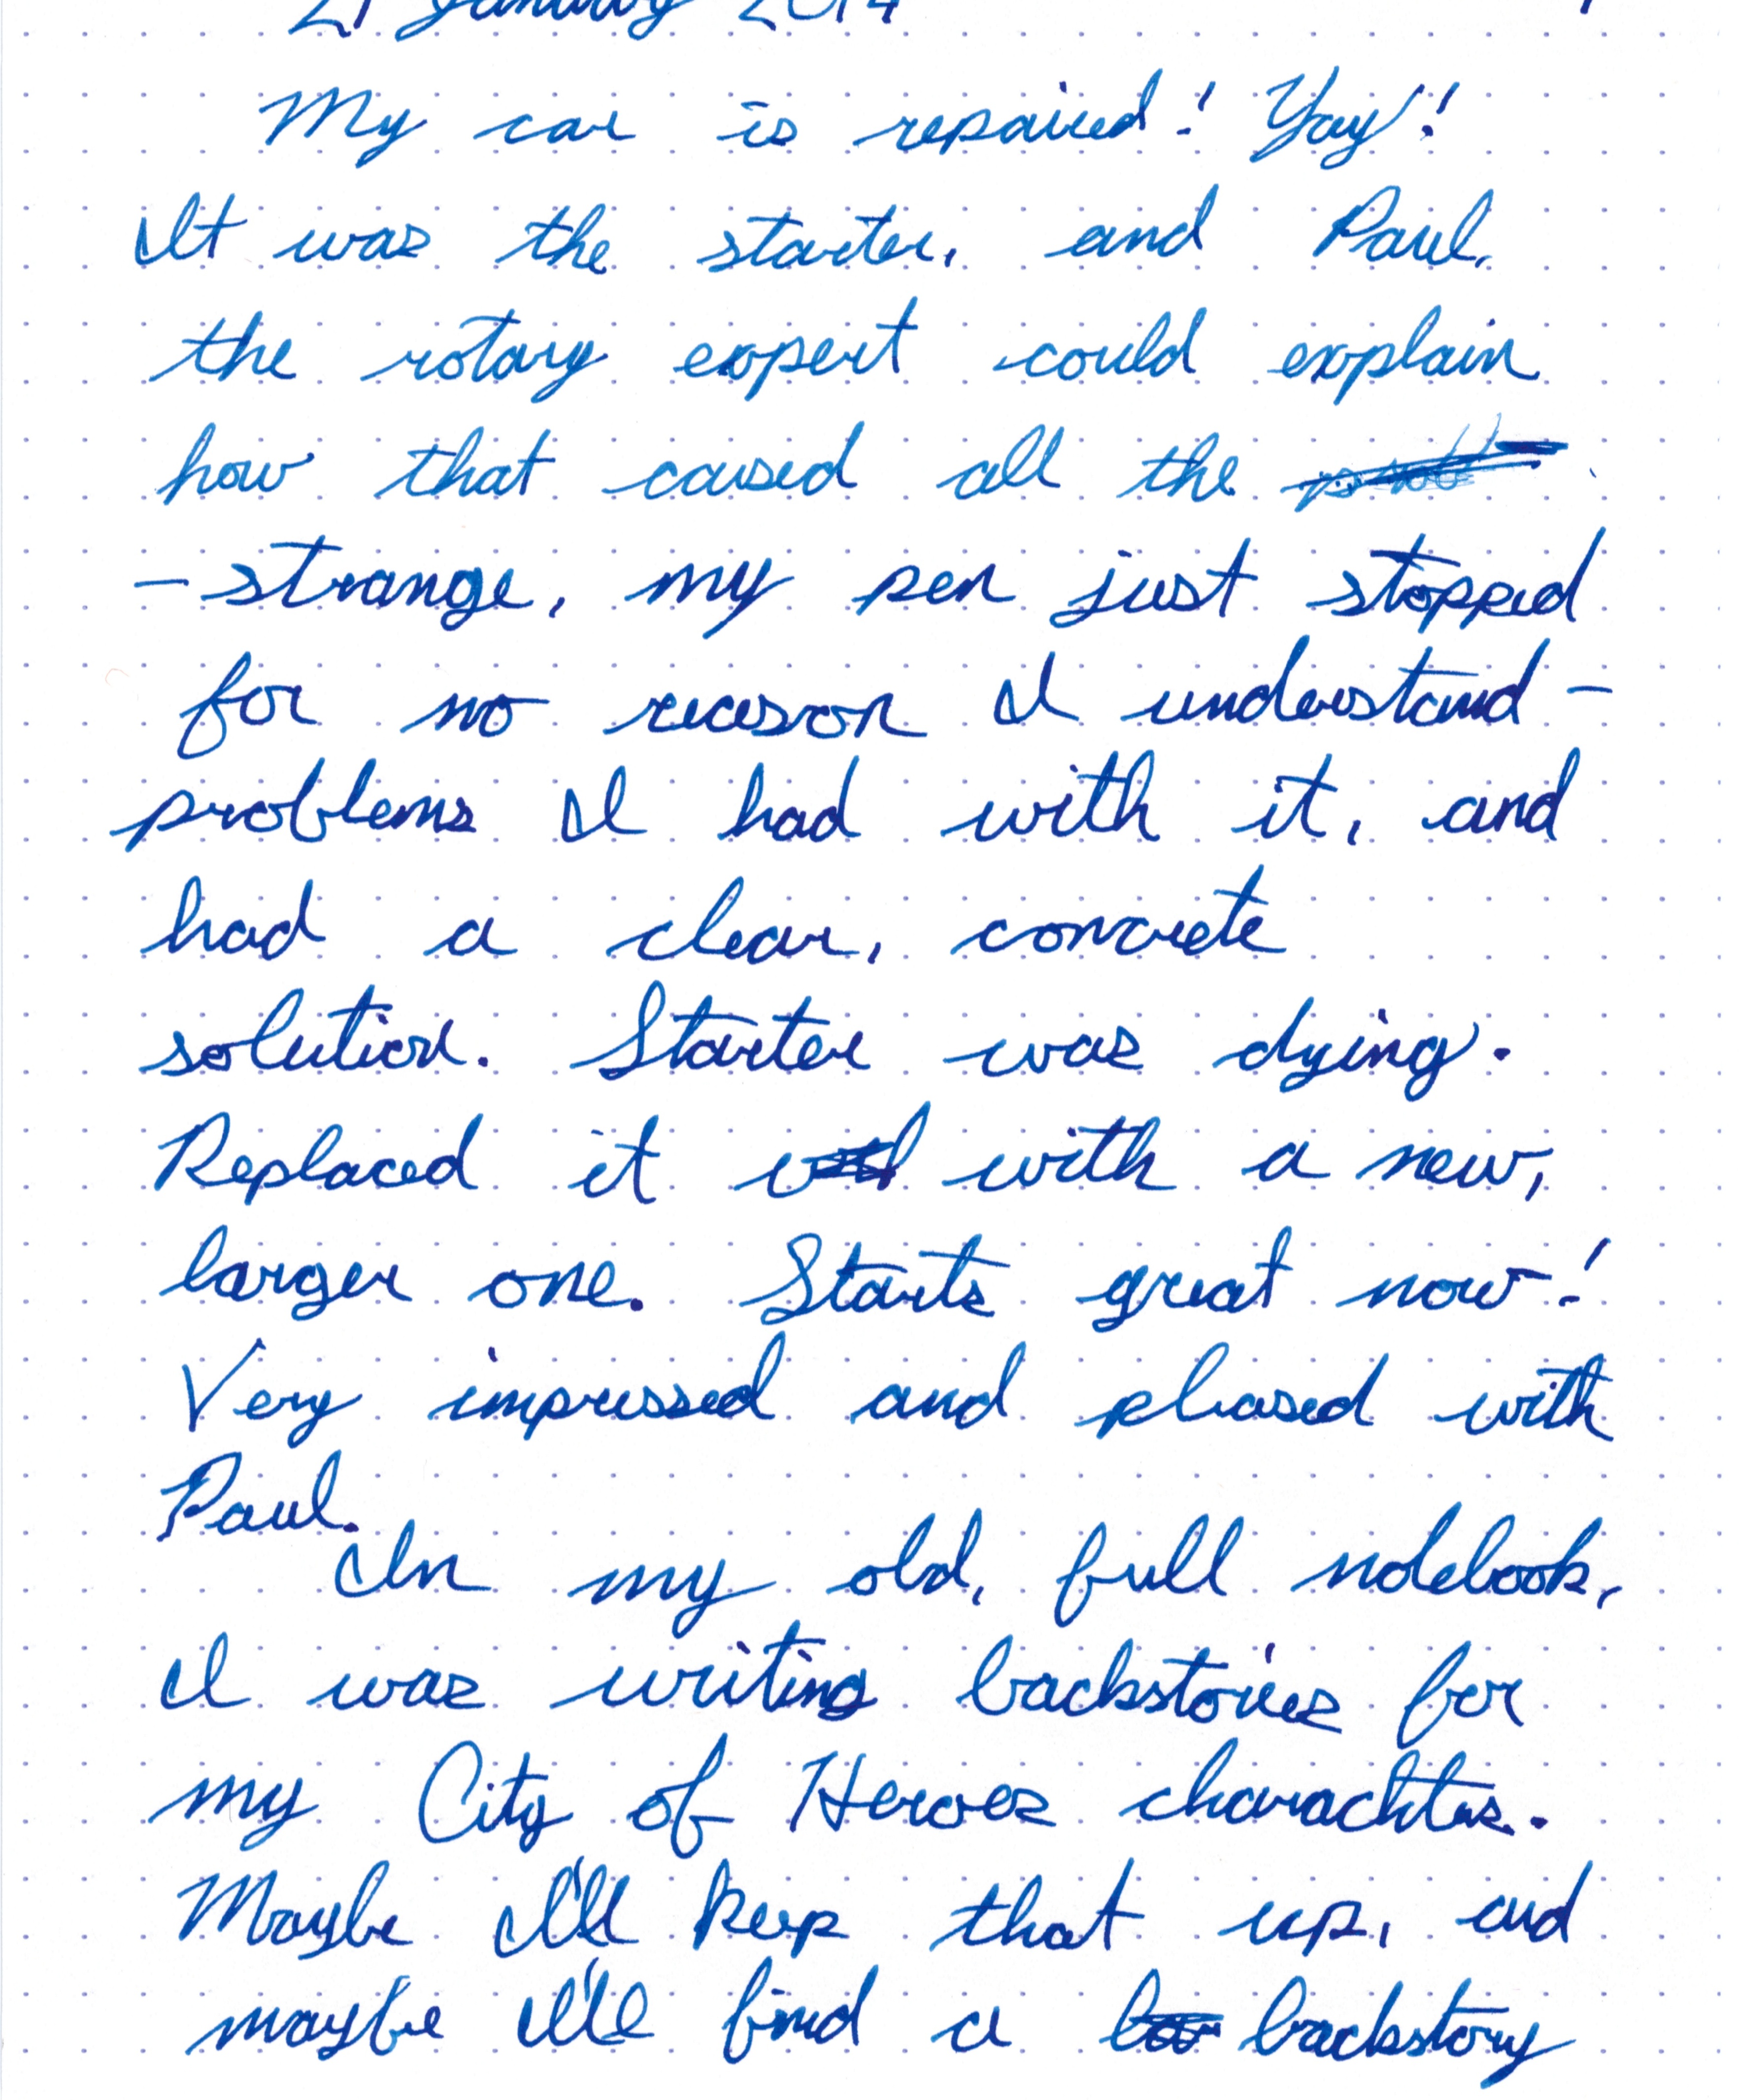 21 January 2014
My car is repaired! Yay!
It was the starter, and Paul,
the rotary expert could explain
how that caused all the
- strange, my pen just stopped
for no reason I understand -
problems I had with it, and
had a clear, concrete
solution. Starter was dying.
Replaced it with a new,
larger one. Starts great now!
Very impressed and pleased with
Paul.
In my old, full notebook,
I was writing backstories for
my City of Heroes charachters.
Maybe I'll keep that up, and
maybe I'll find a backstory